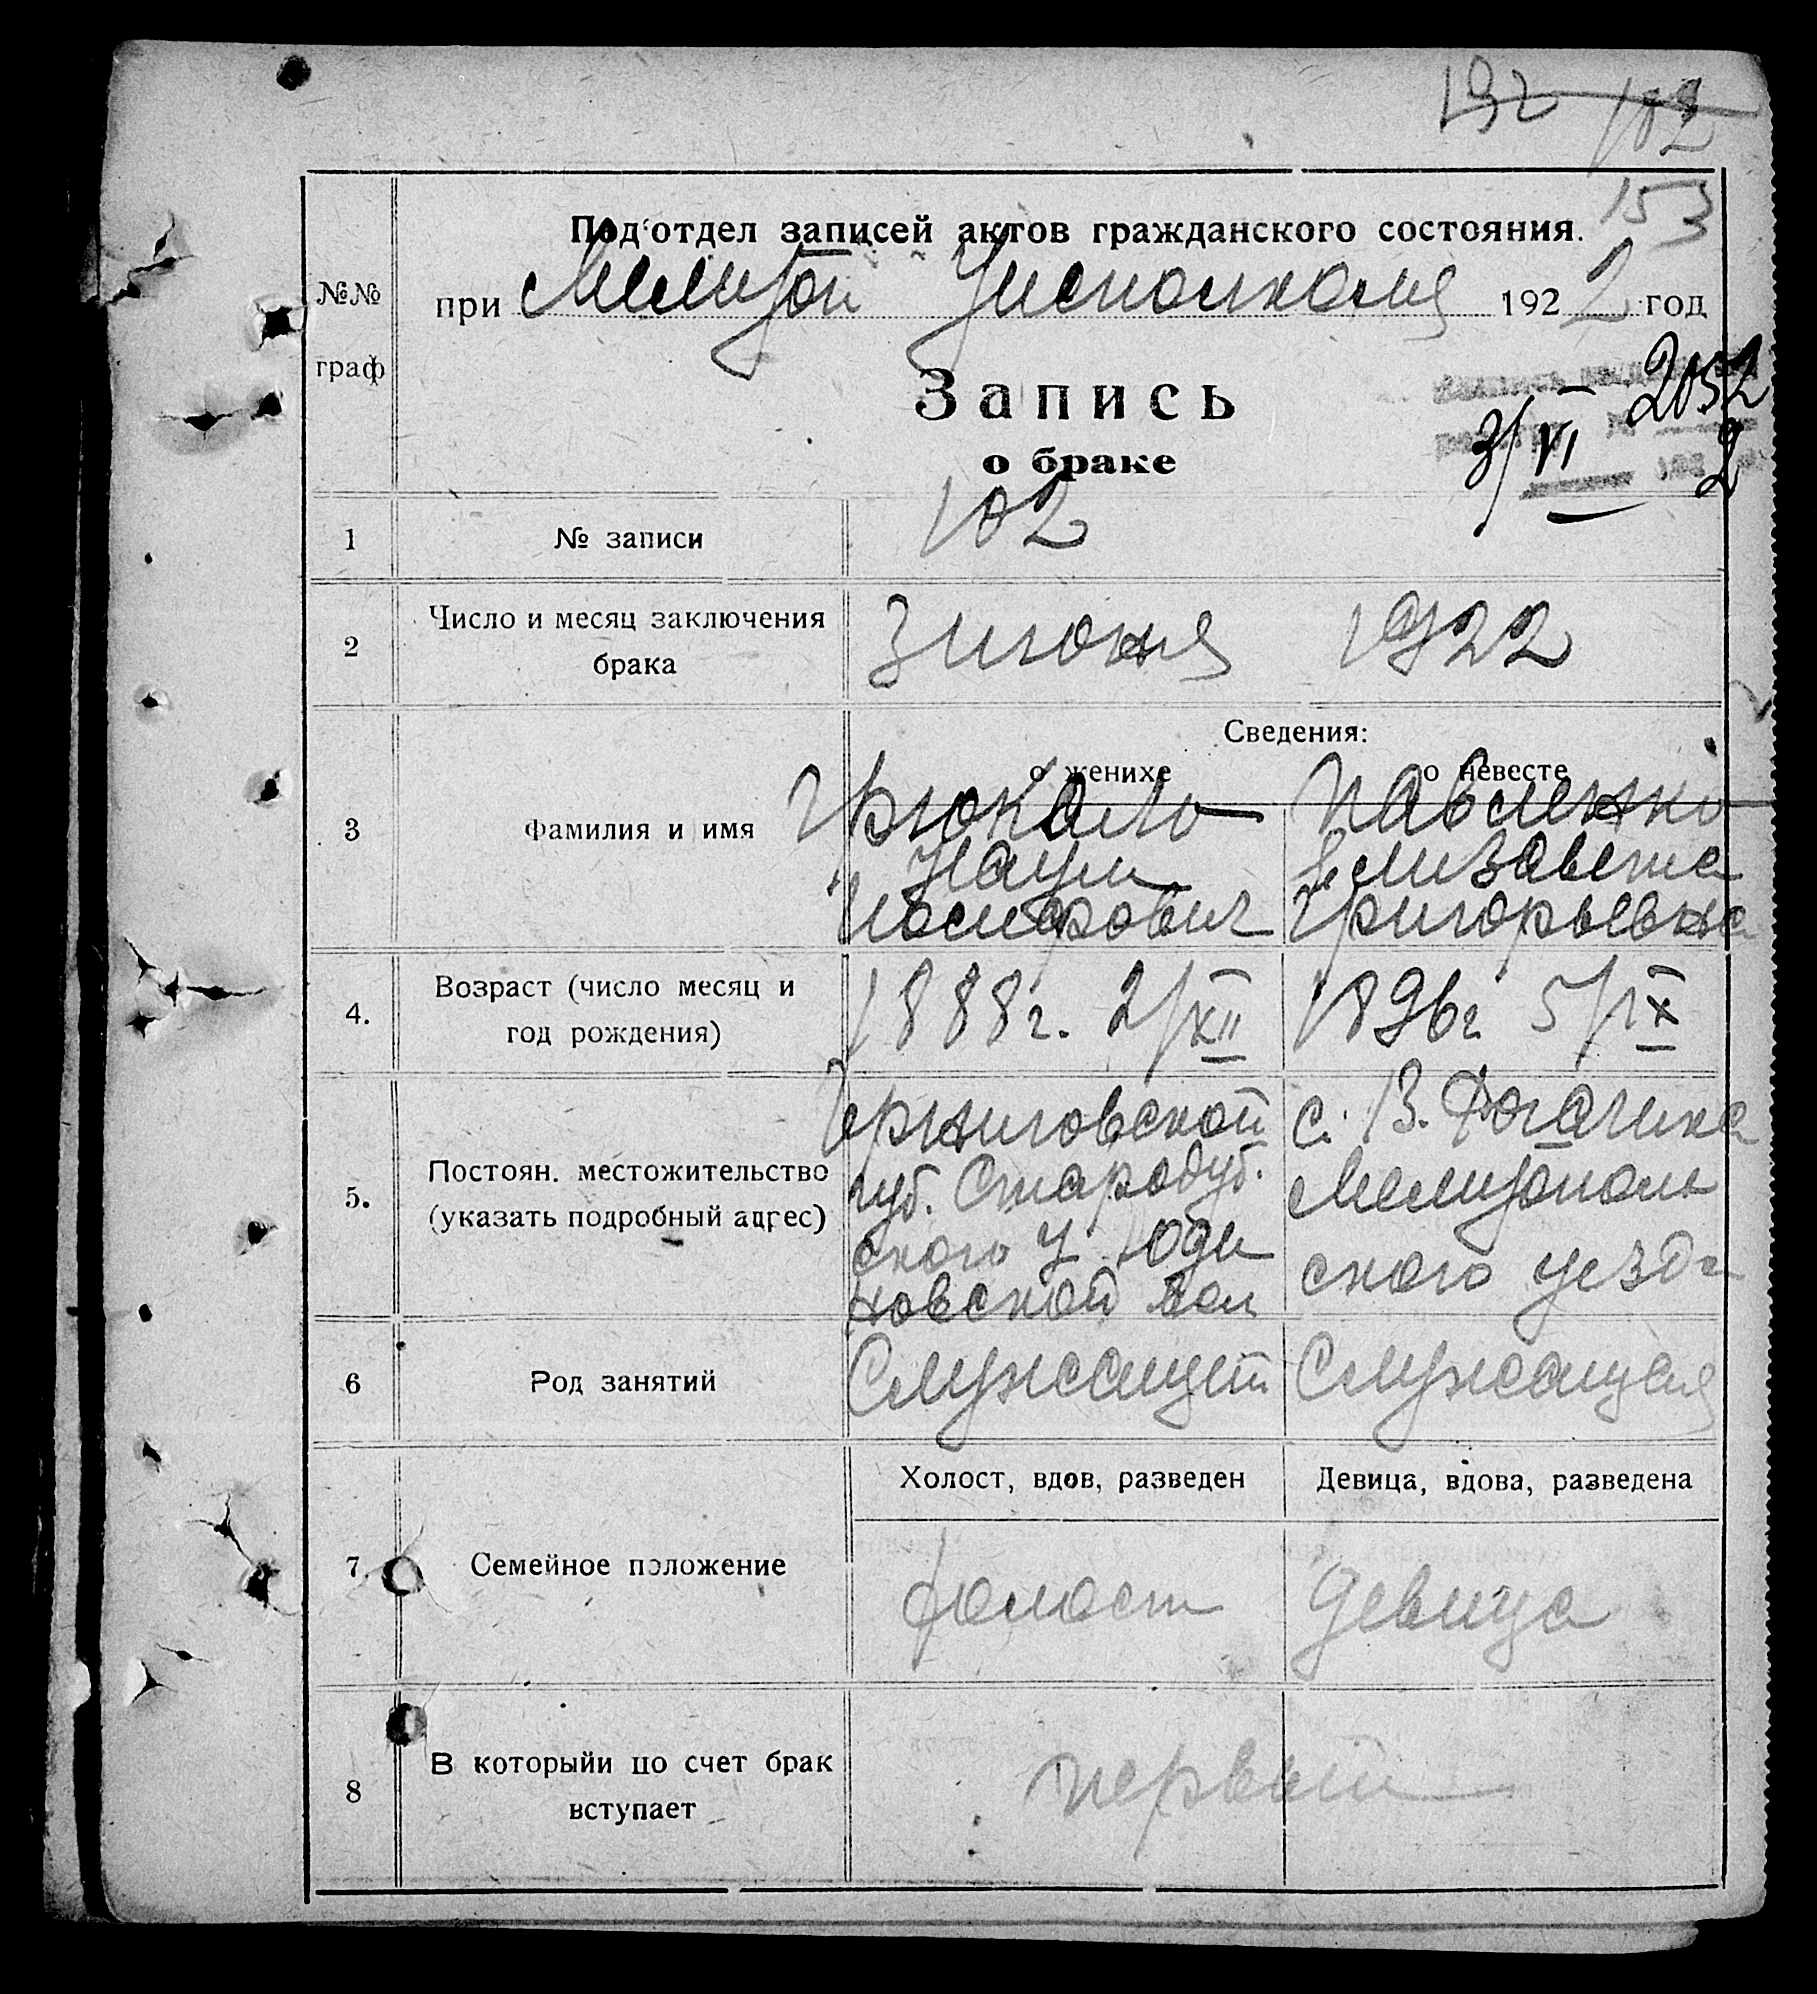 192 182
153
Под'отдел записей актов гражданского состояния.
№№ граф
при Мелитоп Уисполкома 1922 год
Запись
о браке
2052
3/VI 2
1 № записи 102
2 Число и месяц заключения брака 3 июня 1922
Сведения:
о женихе о невесте
3 Фамилия и имя
Грюкало Павленко
Наум Елизавета
Иосифович Григорьевна
4. Возраст (число месяц и год рождения) 1888г. 2/XII 1896г 5/IX
5. Постоян. местожительство (указать подробный адрес)
Черниговской с. В. Рогачика
губ. Стародуб. Мелитополь
ского у ского уезда
новской вол
6 Род занятий Служащий Служащая
Холост, вдов, разведен Девица, вдова, разведена
7 Семейное положение холост девица
8 В которыйи по счет брак вступает первый